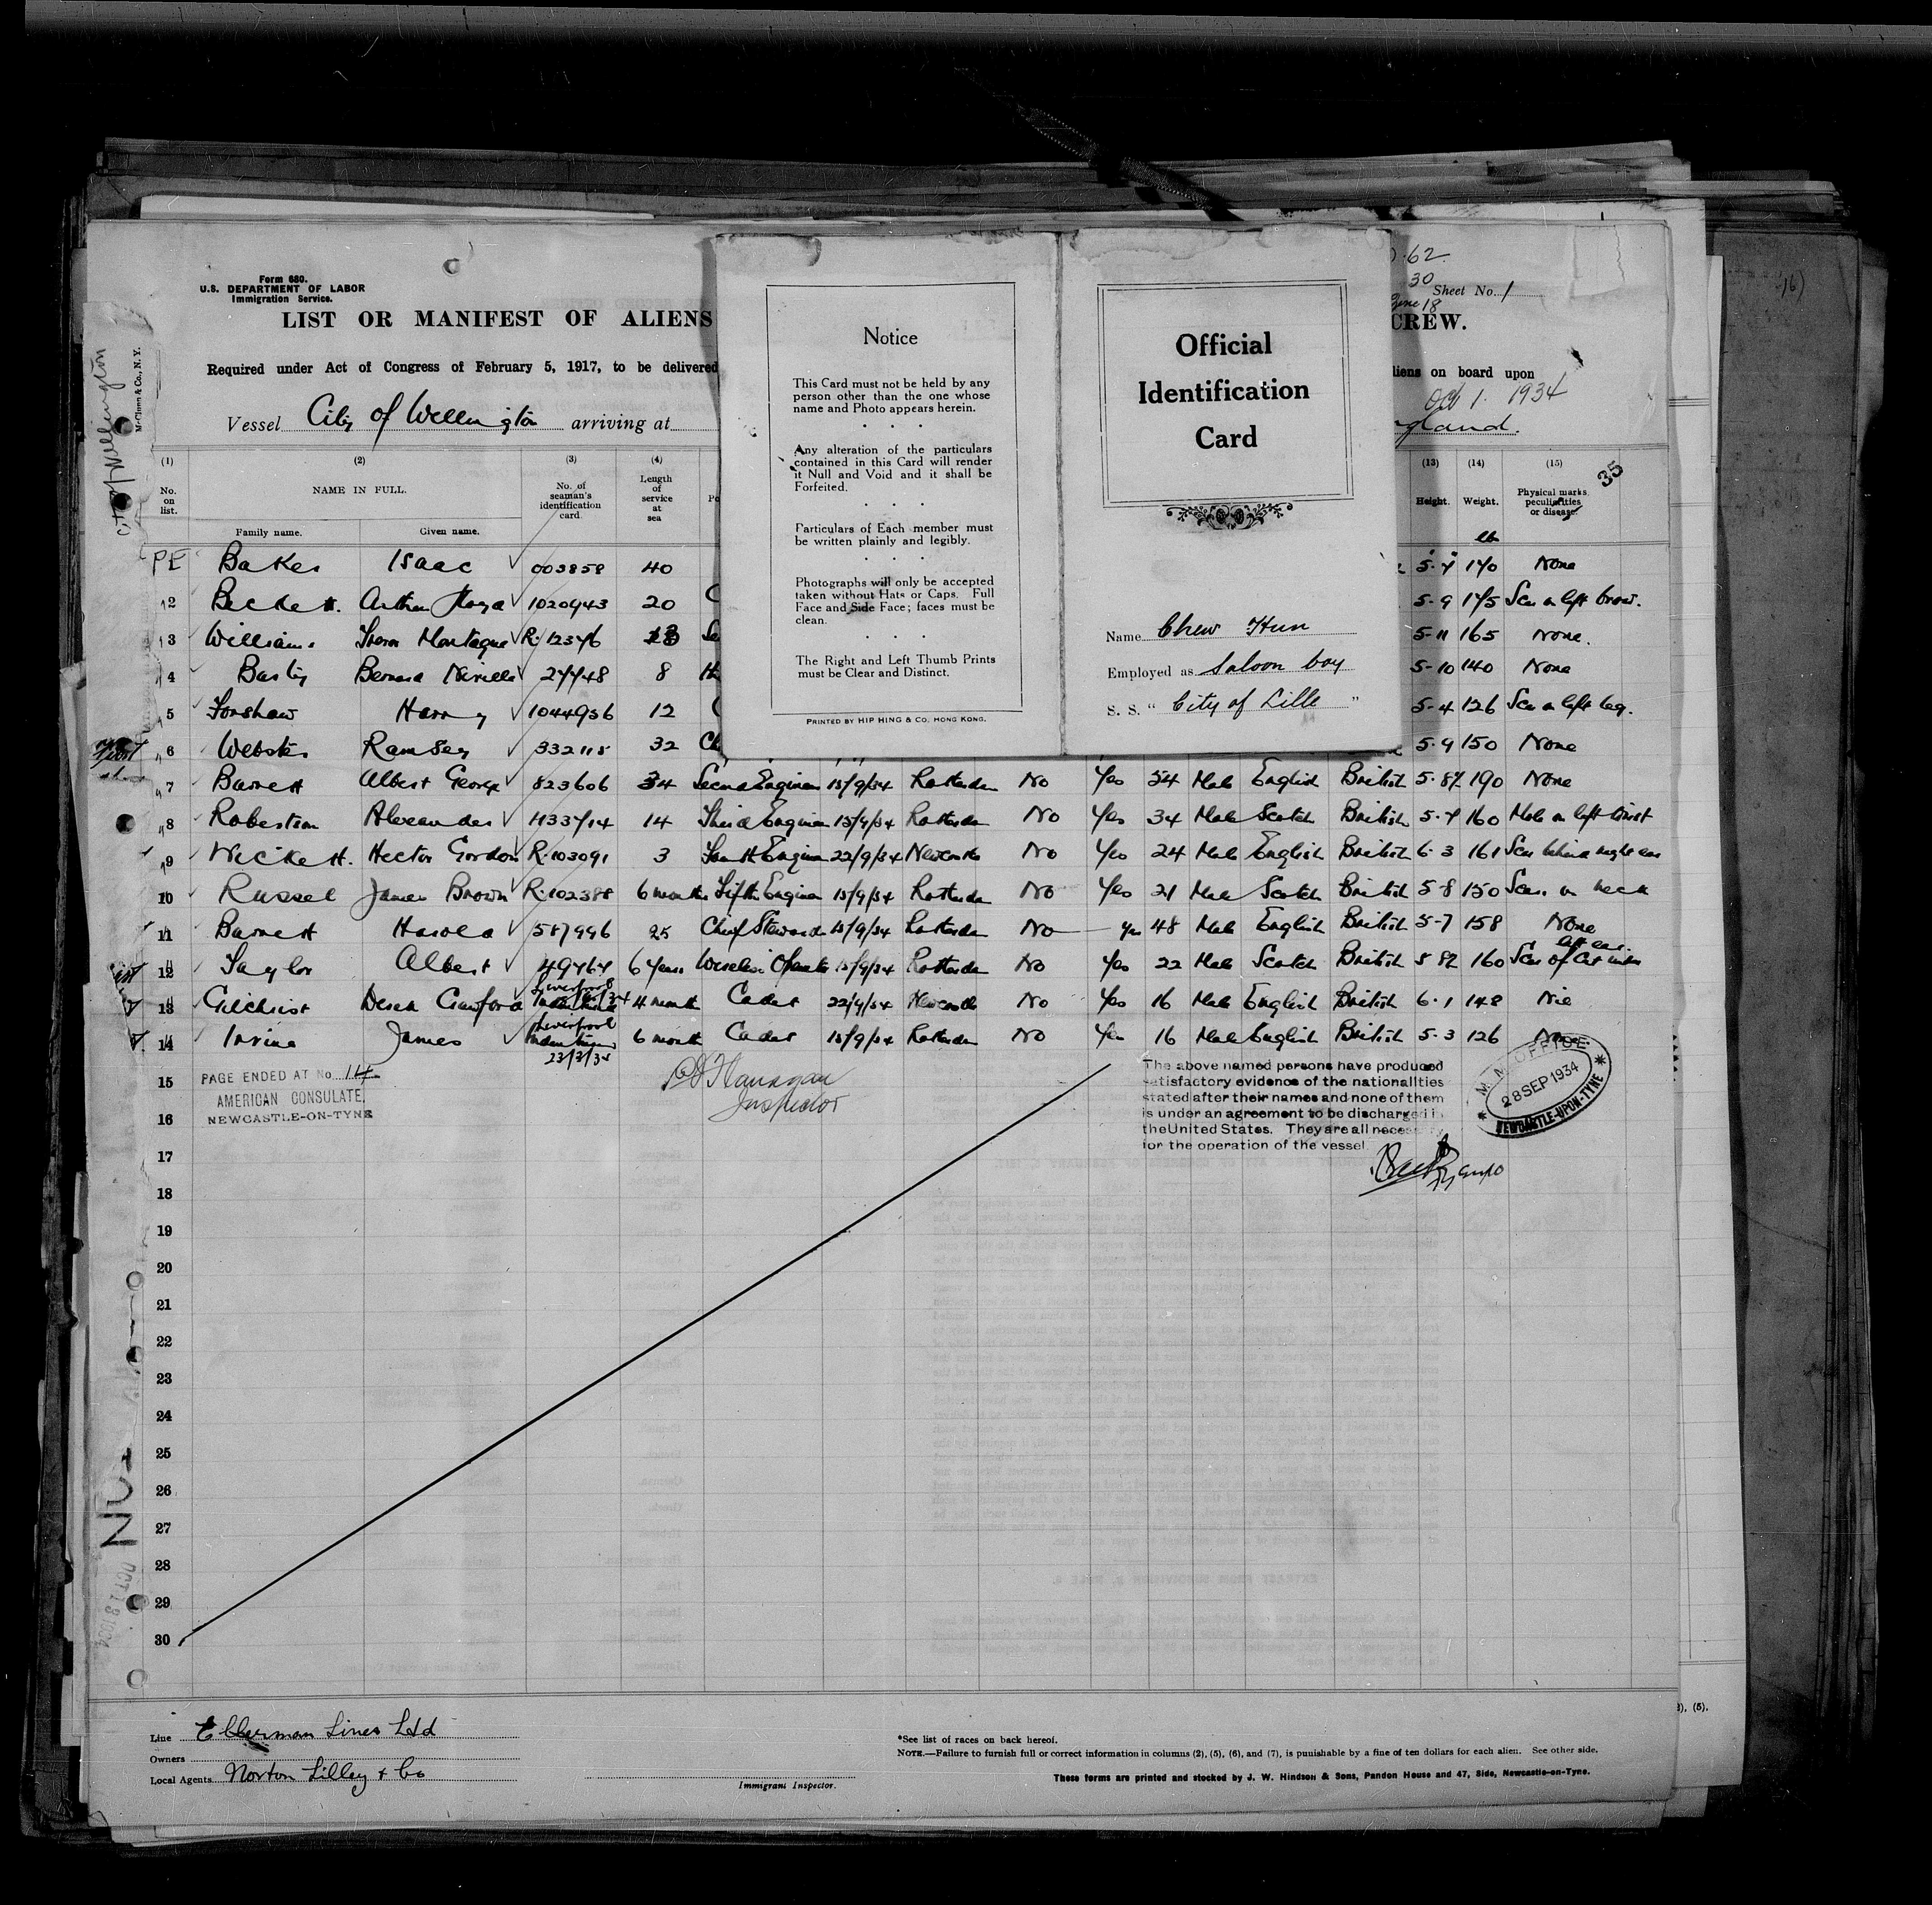 Form 680.
U.S. DEPARTMENT OF LABOR
Immigration Service.
LIST OR MANIFEST OF ALIENS
CREW.
Sheet No. 1
Required under Act of Congress of February 5, 1917, to be delivered
liens on board upon
Oct 1. 1934
Vessel City of Wellington arriving at
gland.
City of Wellington
McClunn & Co., N. Y.
Notice
This Card must not be held by any
person other than the one whose
name and Photo appears herein.
Any alteration of the particulars
contained in this Card will render
it Null and Void and it shall be
Forfeited.
Particulars of Each member must
be written plainly and legibly.
Photographs will only be accepted
taken without Hats or Caps. Full
Face and Side Face; faces must be
clean.
The Right and Left Thumb Prints
must be Clear and Distinct.
PRINTED BY HIP HING & CO. HONG KONG.
Official
Identification
Card
Name Chew Hun
Employed as Saloon boy
S. S. " City of Lille "
(1) (2) (3) (4) (13) (14) (15) 35
No. on list.
NAME IN FULL.
Family name. Given name.
No. of seaman's identification card
Length of service at sea
Height. Weight. Physical marks, peculiarities or disease.
PE Baker Isaac 003858 40 5-7 170 None
2 Beckett. Arthur 1020943 20 5-9 175 Scar on left brow.
3 Williams Montague R-12376 5-11 165 None.
4 Bernard Neville 27448 8 5-10 140 None
5 Forshaw Harry 1044936 12 5-4 126 Scar on left leg.
6 Webster Ramsey 332115 32 5-9 150 None
7 Barnett Albert George 823606 34 Second Engineer 15/9/34 Rotterdam No Yes 54 Male English British 5-8½ 190 None
8 Robertson Alexander 1133714 14 Third Engineer 15/9/34 Rotterdam No Yes 34 Male Scotch British 5-7 160 Mole on left wrist
9 Wickett. Hector Gordon R-103091 3 Fourth Engineer 22/9/34 Newcastle No Yes 24 Male English British 6-3 161 Scar behind right ear
10 Russel James Brown R-102388 6 months Fifth Engineer 15/9/34 Rotterdam No Yes 21 Male Scotch British 5-8 150 Scar on neck
11 Barnett Harold 587996 25 Chief Steward 15/9/34 Rotterdam No Yes 48 Male English British 5-7 158 None
12 Taylor Albert 49764 6 years Wireless Operator 15/9/34 Rotterdam No Yes 22 Male Scotch British 5 8½ 160 Scar of Cut left ear.
13 Gilchrist Derek Crawford Liverpool 4 month Cadet 22/9/34 Newcastle No Yes 16 Male English British 6-1 148 Nil
14 Irvine James Liverpool 23/3/34 6 month Cadet 15/9/34 Rotterdam No Yes 16 Male English British 5-3 126
15
PAGE ENDED AT No. 14
AMERICAN CONSULATE,
NEWCASTLE-ON-TYNE
Flanagan
Inspector
The above named persons have produced
satisfactory evidence of the nationalities
stated after their names and none of them
is under an agreement to be discharged in
the United States. They are all necessary
for the operation of the vessel
M. M. OFFICE
28 SEP 1934
NEWCASTLE-UPON-TYNE
16
17
18
19
20
21
22
23
24
25
26
27
28
29
30
Line Ellerman Lines Ltd
Owners
Local Agents Norton Lilley & Co
Immigrant Inspector.
*See list of races on back hereof.
NOTE.—Failure to furnish full or correct information in columns (2), (5), (6), and (7), is punishable by a fine of ten dollars for each alien. See other side.
These forms are printed and stocked by J. W. Hindson & Sons, Pandon House and 47, Side, Newcastle-on-Tyne.